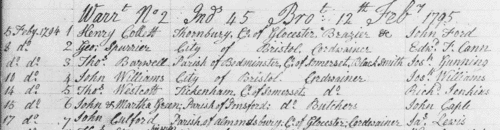 Warrt. No 2 Ind 45 Brot. 12th Feby 1795
5 Feby. 1794 1 Henry Collett Thornbury, C. of Glocester Brazier & John Ford
8 do 2 Geo. Spurrier City of Bristol Cordwainer Edwd. F. Cann
do do 3 Thos. Barwell Parish of Bedminster, C. of Somerset, Black Smith Jos. Gunning
10 do 4 John Williams City of Bristol Cordwainer Jos. Williams
14 do 5 Thos. Westcott Tickenham, C. of Somerset do Richd. Jenkins
15 do 6 John & Martha Green, Parish of do Butchers John Cagle
17 do 7 John Parish of Almondsbury, C. of Glocester, Cordwainer Jas. Lewis